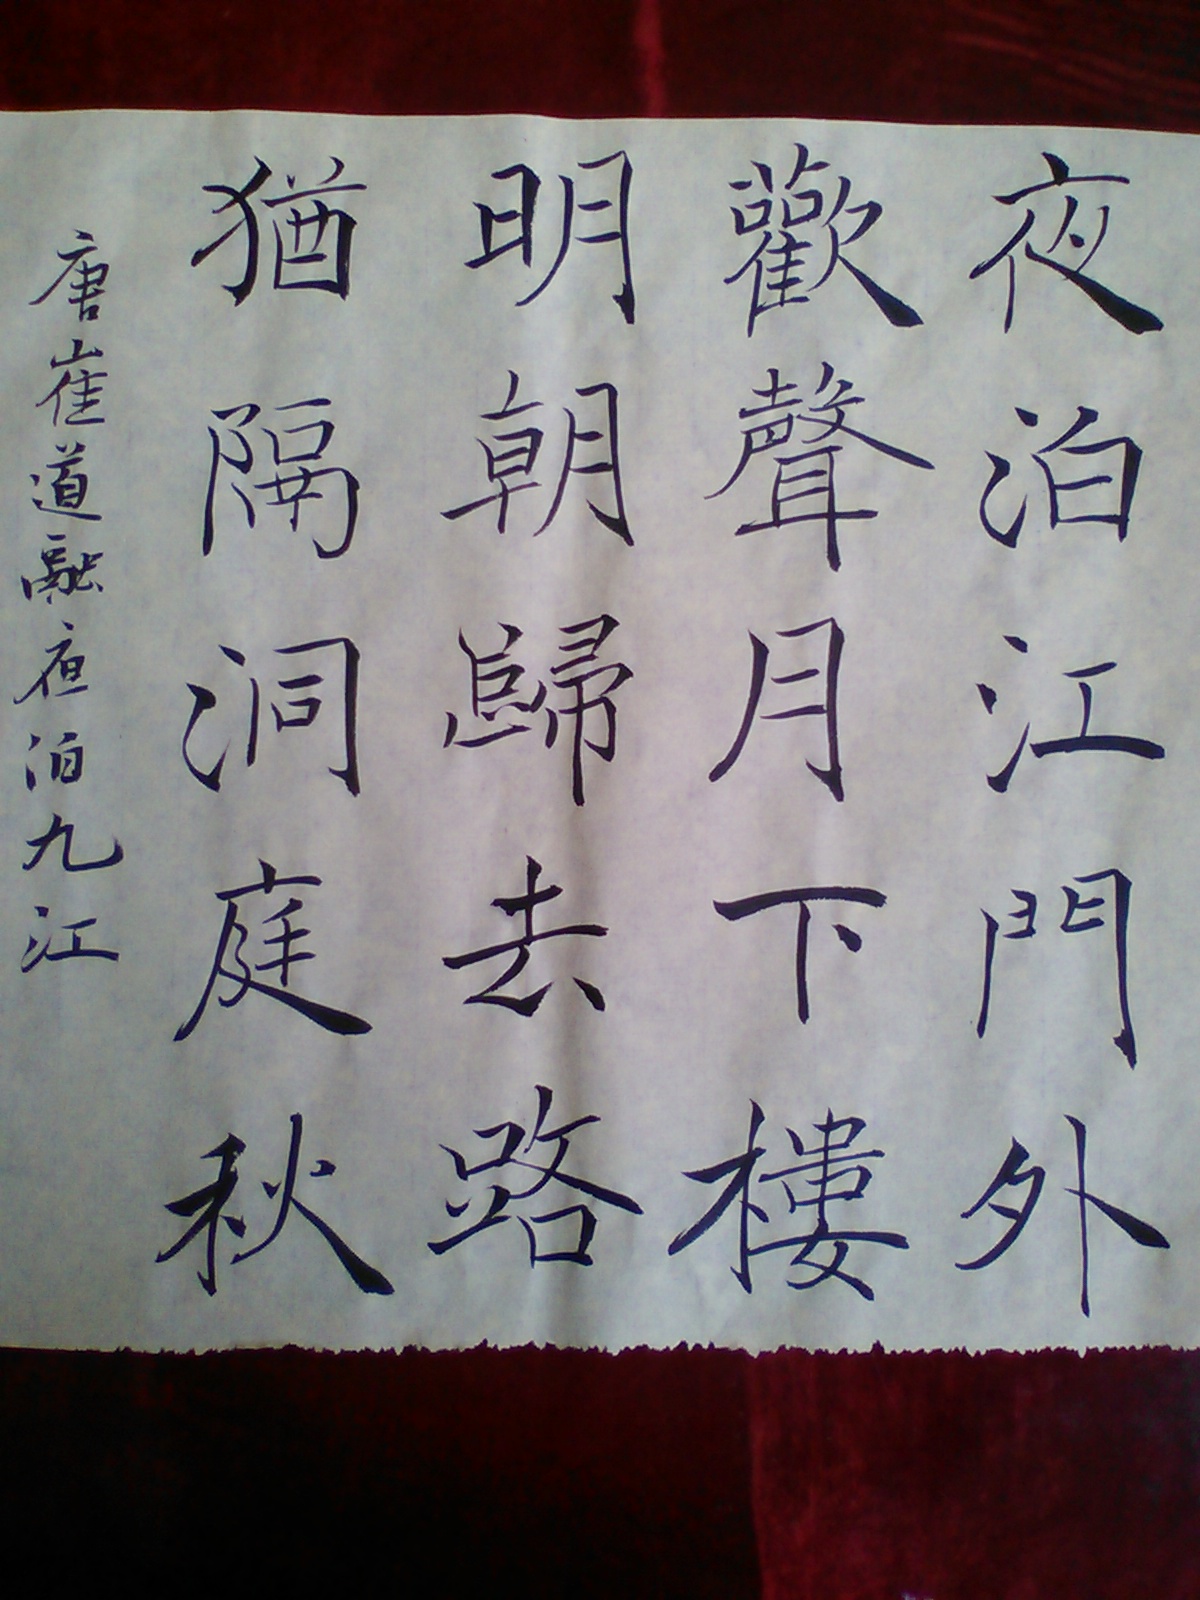 夜泊江門外
歡聲月下樓
明朝歸去路
猶隔洞庭秋
唐崔道融夜泊九江